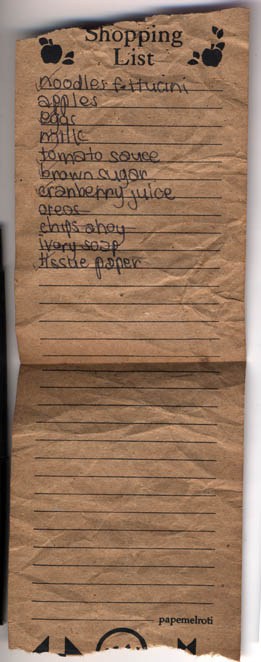 Shopping
List
noodles fettucini
apples
eggs
milk
tomato sauce
brown sugar
cranberry juice
oreos
chips ahoy
ivory soap
tissue paper
papemelroti